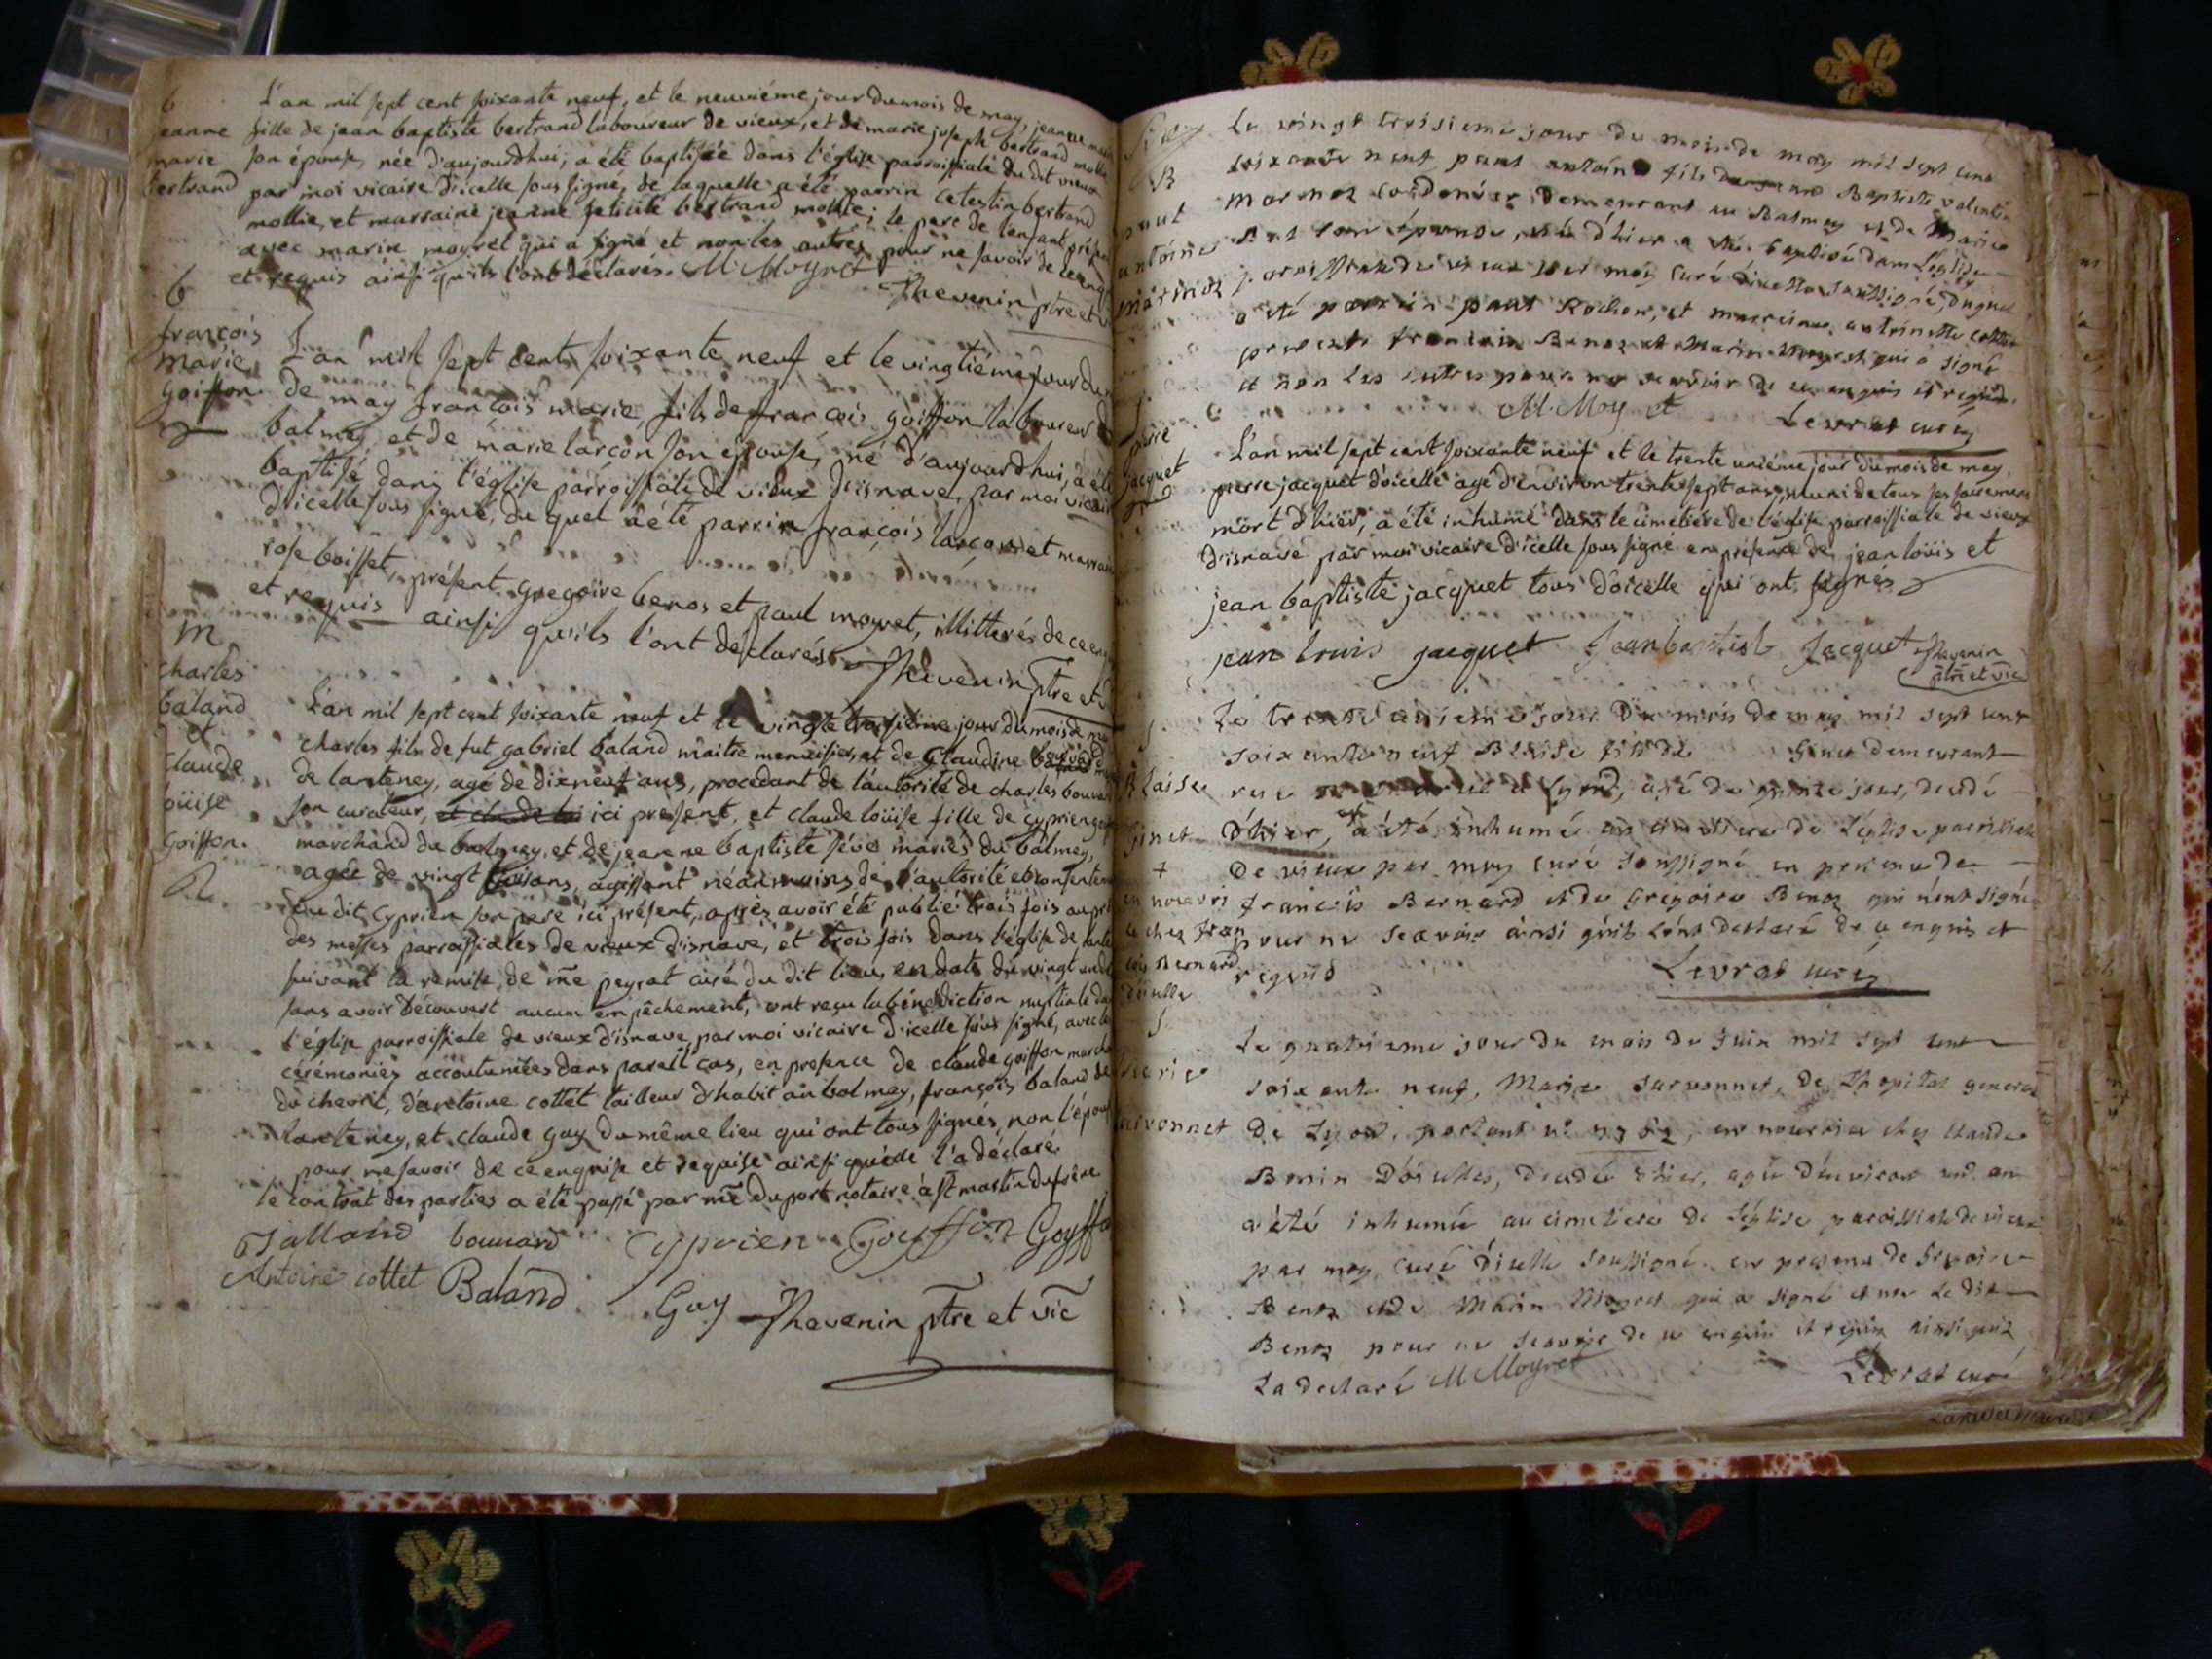 b
jeanne
marie
bertrand
L'an mil sept cent soixante neuf, et le neuviéme jour du mois de may, jeanne
fille de jean baptiste bertrand laboureur de vieux, et de marie joseph bertrand mollie
son épouse, née d'aujourdhui, a été baptisée dans l'église parroissiale du dit vieux
par moi vicaire d'icelle sous signé, de laquelle a été parrin celestin bertrand
mollie, et marraine jeanne felicité bertrand mollie; le pere de l'enfant
avec marin moyret qui a signé et non les autres pour ne savoir de ce
et requis ainsi qu'ils l'ont déclarés. M. Moyret
Thevenin ptre et
b
françois
marie
goiffon
L'an mil sept cent soixante neuf et le vingtiéme jour du
de may françois marie, fils de françois goiffon laboureur
balmey et de marie larçon son épouse, né d'aujourdhui, a été
baptisé dans l'église parroissiale de vieux d'isnave, par moi vicaire
d'icelle sous signé, du quel a été parrin françois larçon et marraine
rose boisset, présent gregoire benos et paul moyret, illitterés de ce
et requis ainsi qu'ils l'ont déclarés
Thevenin ptre et
m
charles
baland
et
Claude
loüise
Goiffon.
L'an mil sept cent soixante neuf et le vingt troisiéme jour du mois de
charles fils de fut gabriel baland maitre menuisier, et de Claudine
de lanteney, agé de dix neuf ans, procedant de l'autorité de charles
son curateur, ici present, et claude loüise fille de cyprien
marchand du balmey, et de jeanne baptiste séve mariés du balmey,
agée de vingt trois ans, agissant néanmoins de l'autorité et
du dit cyprien son pere ici présent, après avoir été publié trois fois
des messes parroissiales de vieux d'isnave, et trois fois dans l'église de
suivant la remise de me peyrat curé du dit lieu en date du vingt
sans avoir découvert aucun empêchement, ont reçu la bénédiction nuptiale
l'église parroissiale de vieux d'isnave, par moi vicaire d'icelle sous signé, avec les
cérémonies accoutumées dans pareil cas, en presence de claude goiffon
du chevril, d'antoine cottet tailleur d'habit au balmey, françois baland de
lanteney, et claude guy du même lieu qui ont tous signés, non l'épouse
pour ne savoir de ce enquise et requise ainsi qu'elle l'a déclaré
le contrat des parties a été passé par me duport notaire à st martin du frêne
bouvard cyprien Goyffon
Antoine cottet Baland
Guy Thevenin ptre et vic
B
paul
antoine
marmoz
Le vingt troisieme jour du mois de may mil sept cens
soixante neuf paul antoine fils Baptiste valentin
marmoz cordonier demeurant au Balmey et de Marie
son épouse, né d'hier a été baptisé dans l'église
paroissiale de vieux par moy curé d'icelle soussigné, duquel
a été parrin paul Rochon, et marreine
presents françois Benoz et Marin Moyret qui a signé
et non les autres pour ne scavoir de ce enquis et requis.
M. Moyret Levrat curé
jacquet
L'an mil sept cent soixante neuf et le trente uniéme jour du mois de may,
pierre jacquet d'oicelle agé d'environ trente sept ans, muni de tous ses sacrements
mort d'hier, a été inhumé dans le cimetiere de l'église parroissiale de vieux
d'isnave par moi vicaire d'icelle sous signé en présence de jean loüis et
jean baptiste jacquet tous d'oicelle qui ont signés
jean Louis jacquet Jean baptiste Jacquet Thevenin
ptre et vic
Blaise
en nourri
ce chez fran
cois Bernard
Le trente unieme jour du mois de may mil sept cent
soixante neuf Blaise fils de demeurant
rue a Lyon, agé de quinze jour, decedé
d'hier, a été inhumé au cimetiere de l'eglise paroissiale
de vieux par moy curé soussigné en presence de
francois Bernard et de Gregoire Benoz qui n'ont signé
pour ne scavoir ainsi qu'ils l'ont declaré de ce enquis et
requis Levrat curé
Marie
Le quatrieme jour du mois de Juin mil sept cent
soixante neuf, Marie, de l'hopital general
de Lyon, portant n° en nourrice chez claude
d'oicelle, decedée d'hier, agée d'environ un an
a été inhumée au cimetiere de l'église paroissiale de vieux
par moy curé d'icelle soussigné en presence de Gregoire
Benoz et de Marin Moyret qui a signé et non le dit
Benoz pour ne scavoir de ce enquis et requis ainsi qu'il
La declaré M Moyret Levrat curé